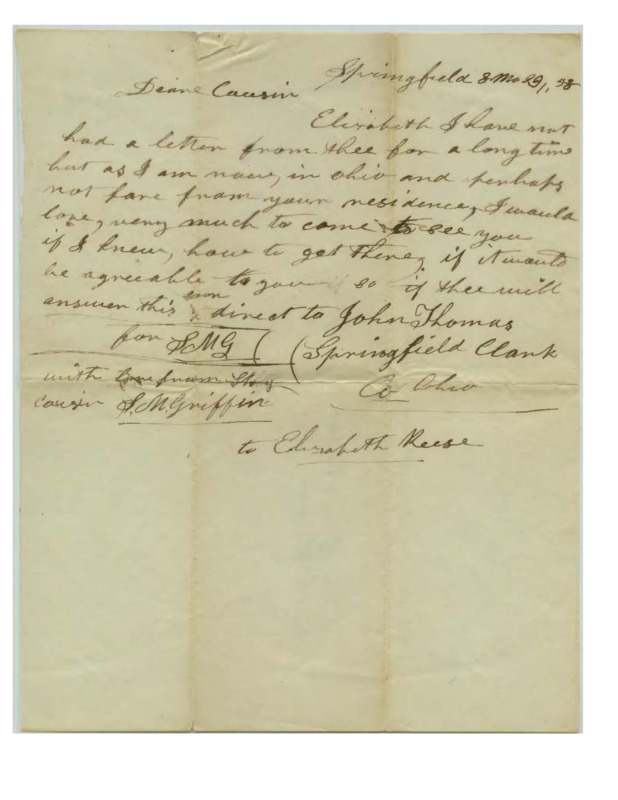 Springfield 8 Mo 29, 58
Deare Cousin
Elizabeth I have not
had a letter from thee for a long time
but as I am now, in ohio and perhaps
not fare from your residence, I would
love, very much to come to see you
if I knew, how to get there, if it would
be agreeable to you if so if thee will
answer this soon direct to John Thomas
for SMG ( Springfield Clark
Co Ohio
with love from thy
cousin S. M. Griffin
to Elizabeth Reese